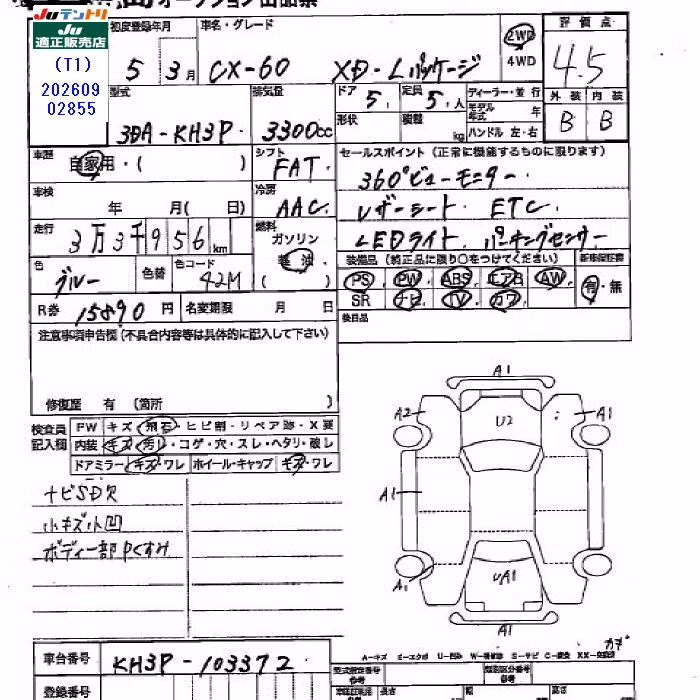 オークション出品票
Juテントリ
JU 適正販売店
(T1)
202609
02855
初度登録年月
5年3月
車名・グレード
CX-60 XD-Lパッケージ
2WD
4WD
評価点
4.5
型式
3DA-KH3P
排気量
3300cc
ドア 5
定員 5人
ディーラー・並行
モデル年式 年
形状
積載 kg
ハンドル 左・右
外装 内装
B B
車歴
自家用・( )
シフト
FAT
セールスポイント(正常に機能するものに限ります)
360°ビューモニター
車検
年 月( 日)
冷房
AAC
レザーシート ETC
走行
3万3千956km
燃料
ガソリン
軽油
( )
LEDライト パーキングセンサー
色
ブルー
色替
色コード
42M
装備品(純正品に限り○をつけてください)
新車保証書
PS PW ABS エアB AW
有・無
SR ナビ TV カワ
R券 15890円
名変期限 月 日
後日品
注意事項申告欄(不具合内容等は具体的に記入して下さい)
修復歴 有(箇所 )
検査員記入欄
FW キズ・飛石・ヒビ割・リペア跡・X要
内装 キズ・汚れ・コゲ・穴・スレ・ヘタリ・破レ
ドアミラー キズ・ワレ
ホイール・キャップ キズ・ワレ
ナビSD欠
小キズ小凹
ボディー部Pくすみ
A1
A2
U2
A1
A1
A1
UA1
A1
カギ
A-キズ E-エクボ U-凹み W-補修跡 S-サビ C-腐食 XX-交換済
車台番号
KH3P-103372
登録番号
型式指定番号
類別区分番号
参考
長さ
幅
高さ